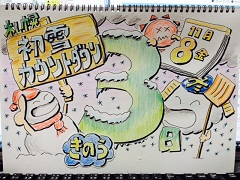 初雪
カウントダウン
11月
8金
3
日
きのう